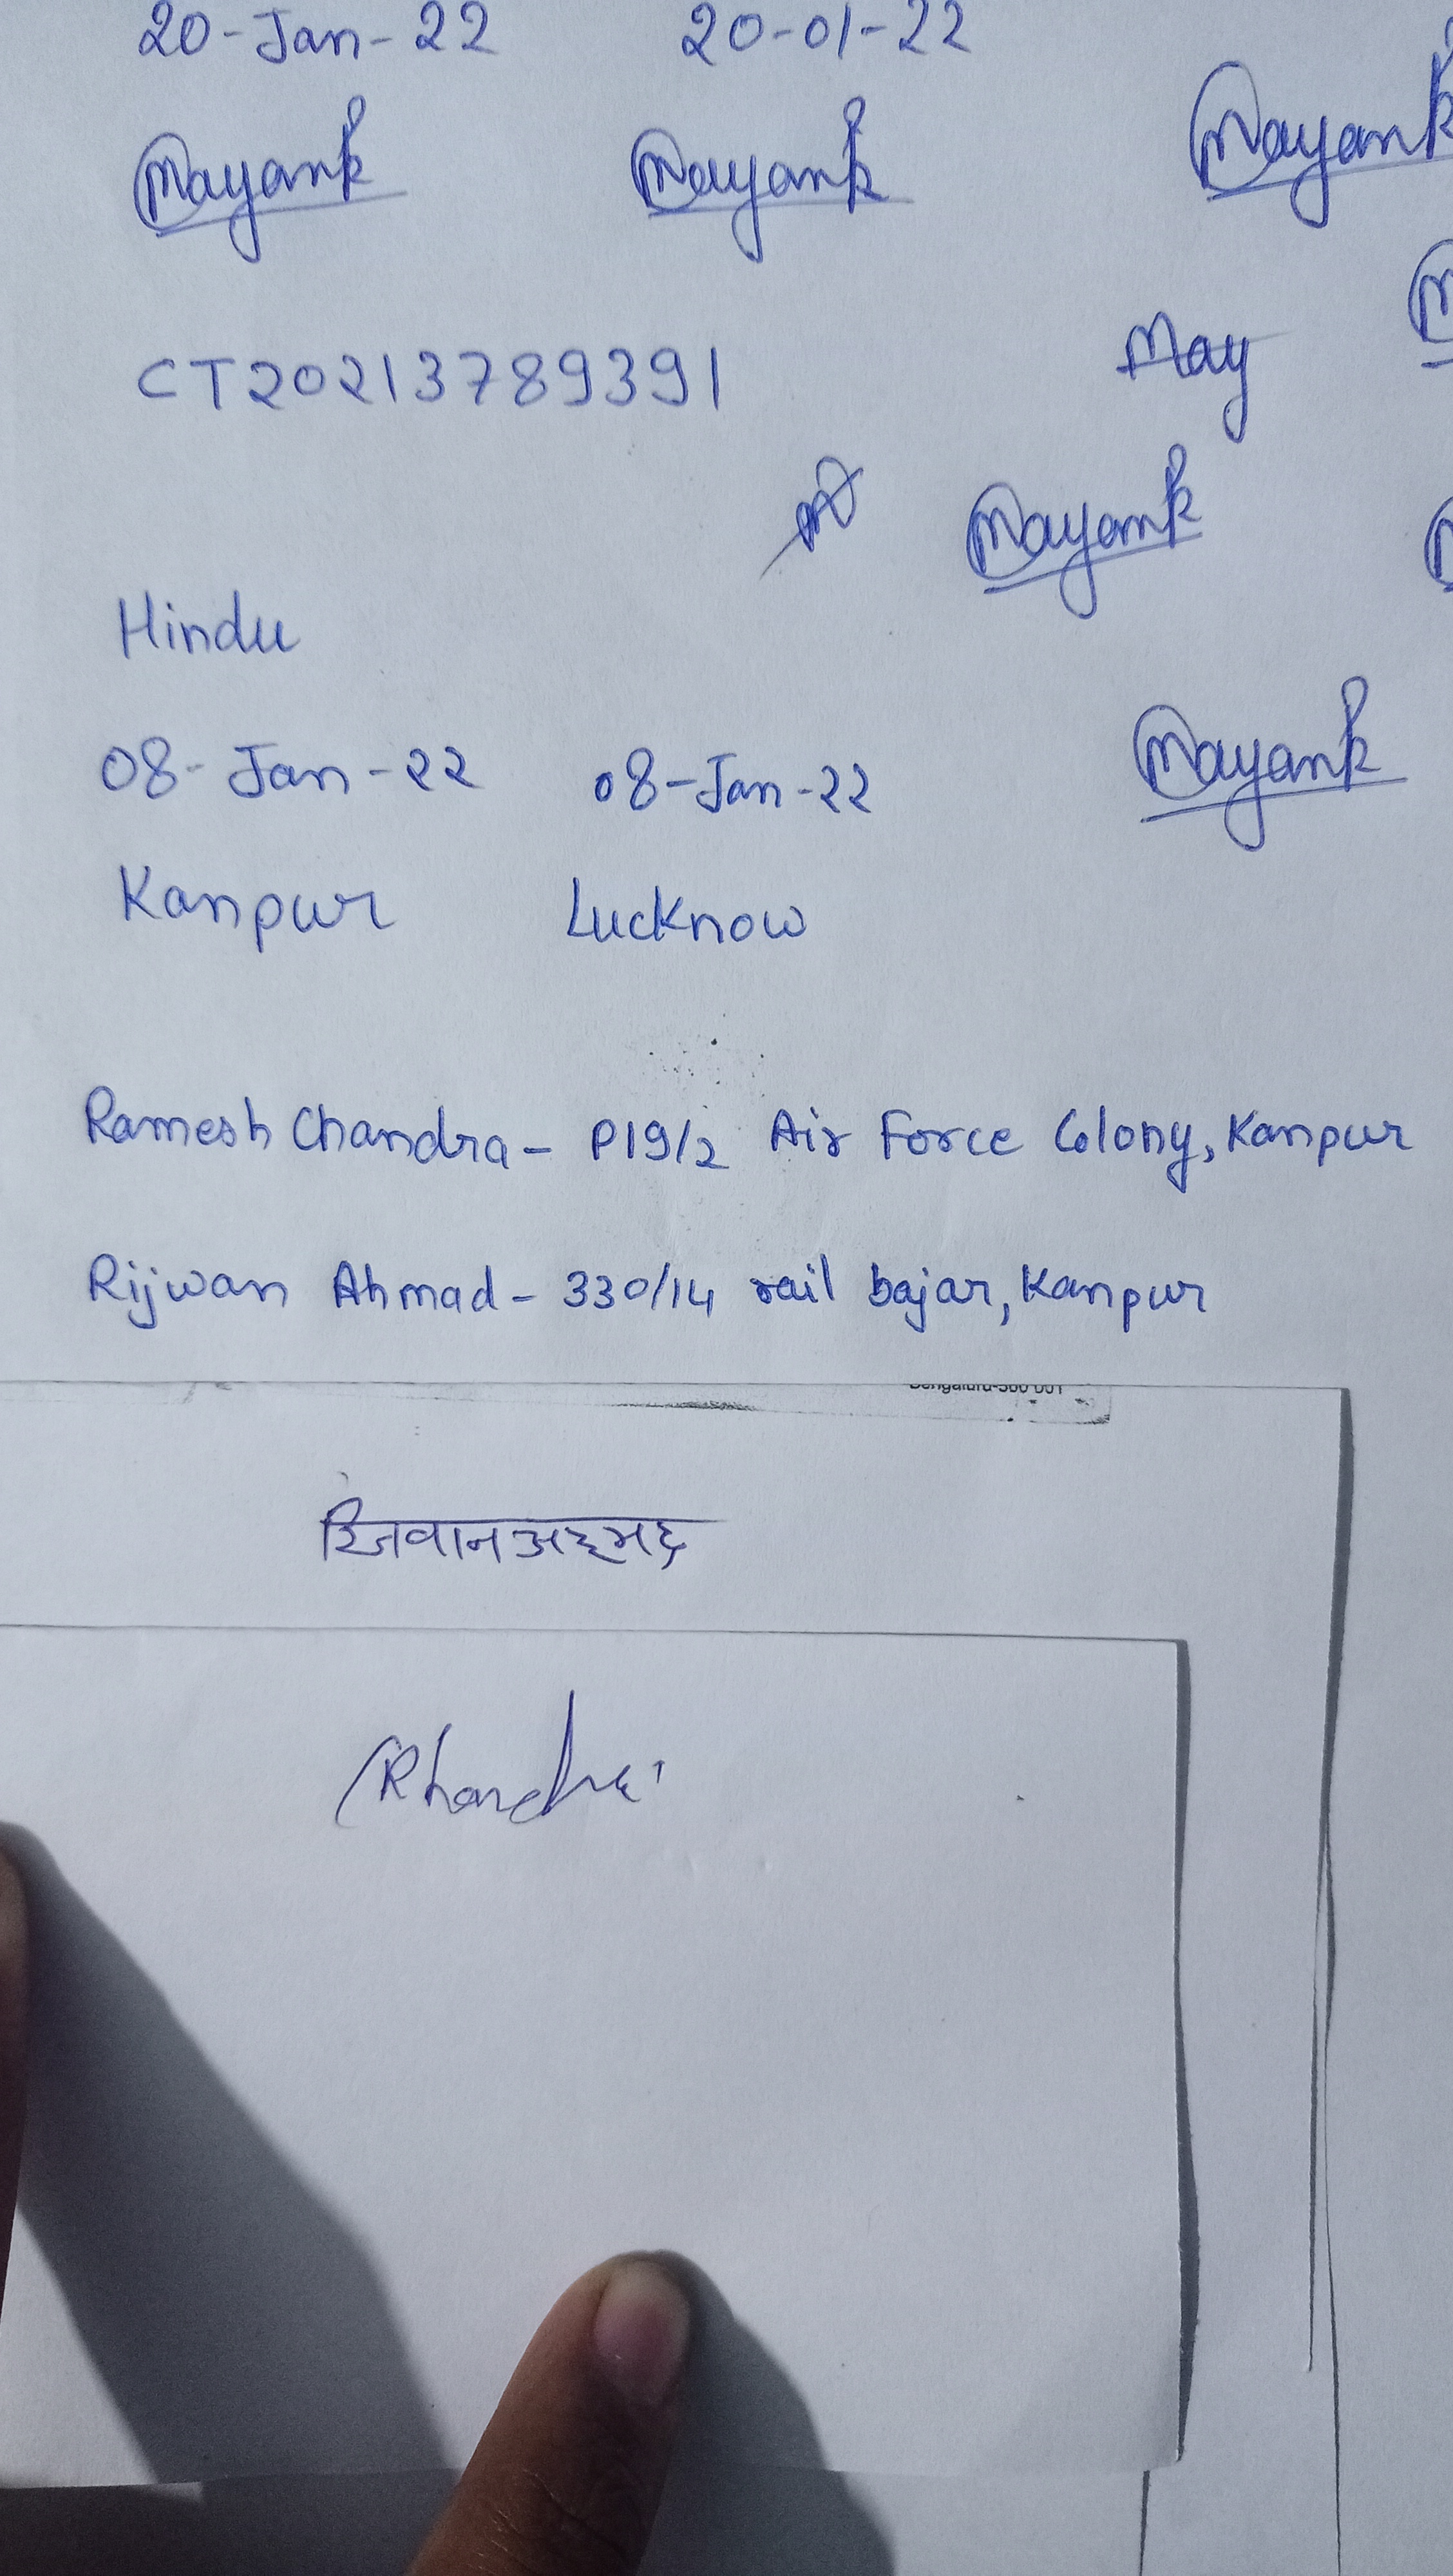 20-Jan-22 20-01-22
Mayank Mayank Mayank
CT20213789391 May
Mayank
Hindu
08-Jan-22 08-Jan-22 Mayank
Kanpur Lucknow
Ramesh Chandra - P19/2 Air Force Colony, Kanpur
Rijwan Ahmad - 330/14 rail bajar, Kanpur
Bengaluru-560 001
रिजवान अहमद